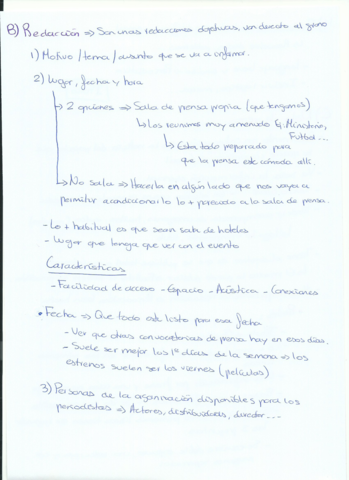 B) Redacción => Son unas redacciones objetivas, van directo al grano
1) Motivo / tema / asunto que se va a informar.
2) Lugar, fecha y hora
→ 2 opciones => Sala de prensa propia (que tengamos)
↳ Las reuniones muy amenudo Ej. Ministerio, Futbol...
↳ Esta todo preparado para
que la prensa este cómoda allí.
→ No sala => Hacerla en algún lado que nos vaya a
permitir acondicionarlo lo + parecido a la sala de prensa.
- Lo + habitual es que sean salas de hoteles
- Lugar que tenga que ver con el evento
Características
- Facilidad de acceso - Espacio - Acústica - Conexiones
• Fecha => Que todo este listo para esa fecha
- Ver que otras convocatorias de prensa hay en esos días.
- Suele ser mejor los 1º días de la semana => los
estrenos suelen ser los viernes (películas)
3) Personas de la organización disponibles para los
periodistas => Actores, distribuidores, director...